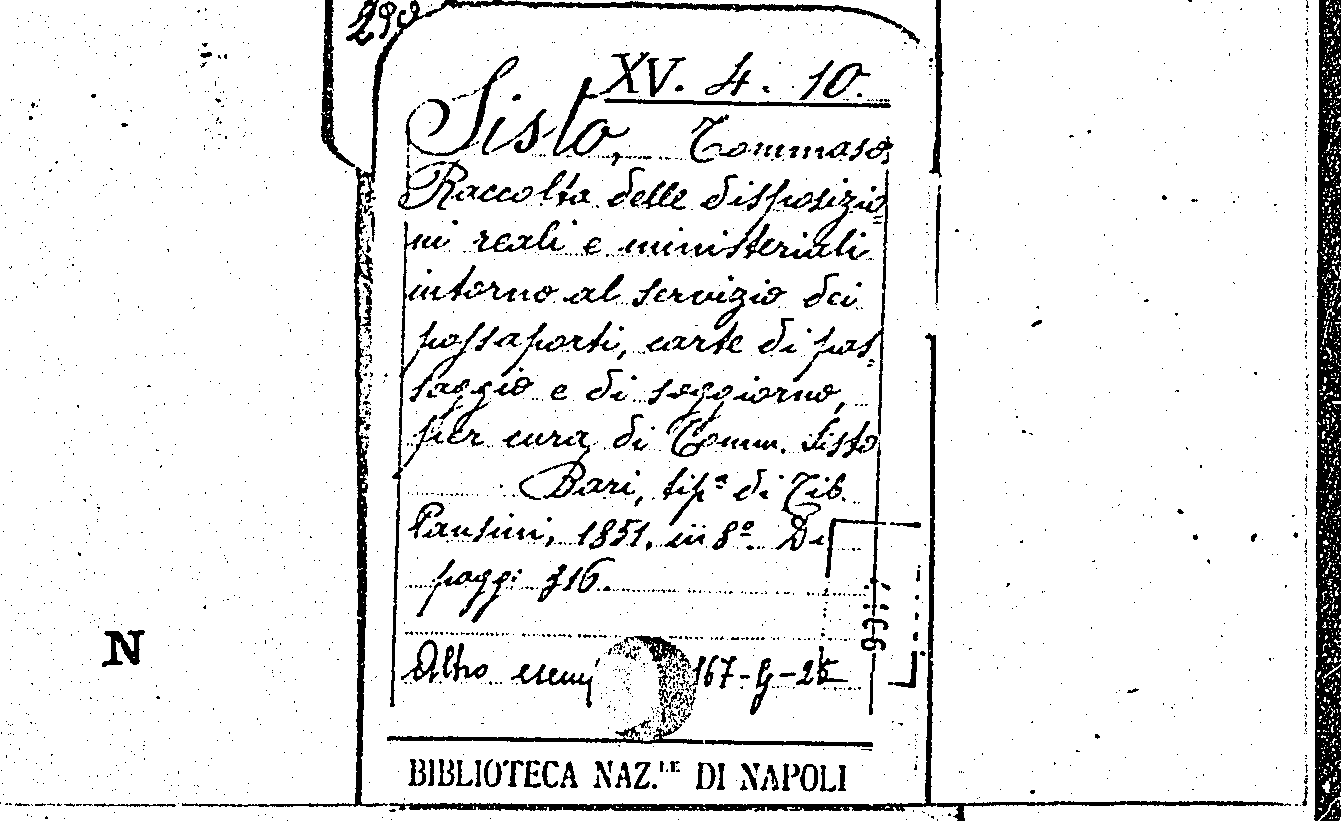 XV. 4. 10.
Sisto, Tommaso
Raccolta delle disposizio=
ni reali e ministeriali
intorno al servizio dei
passaporti, carte di pas=
saggio e di soggiorno,
per cura di Tomm. Sisto
Bari, tip.ª di Tib.
Pansini, 1851. in 8º. Di
pagg. 316.
Altro esem 167-G-25
N
BIBLIOTECA NAZ.LE DI NAPOLI